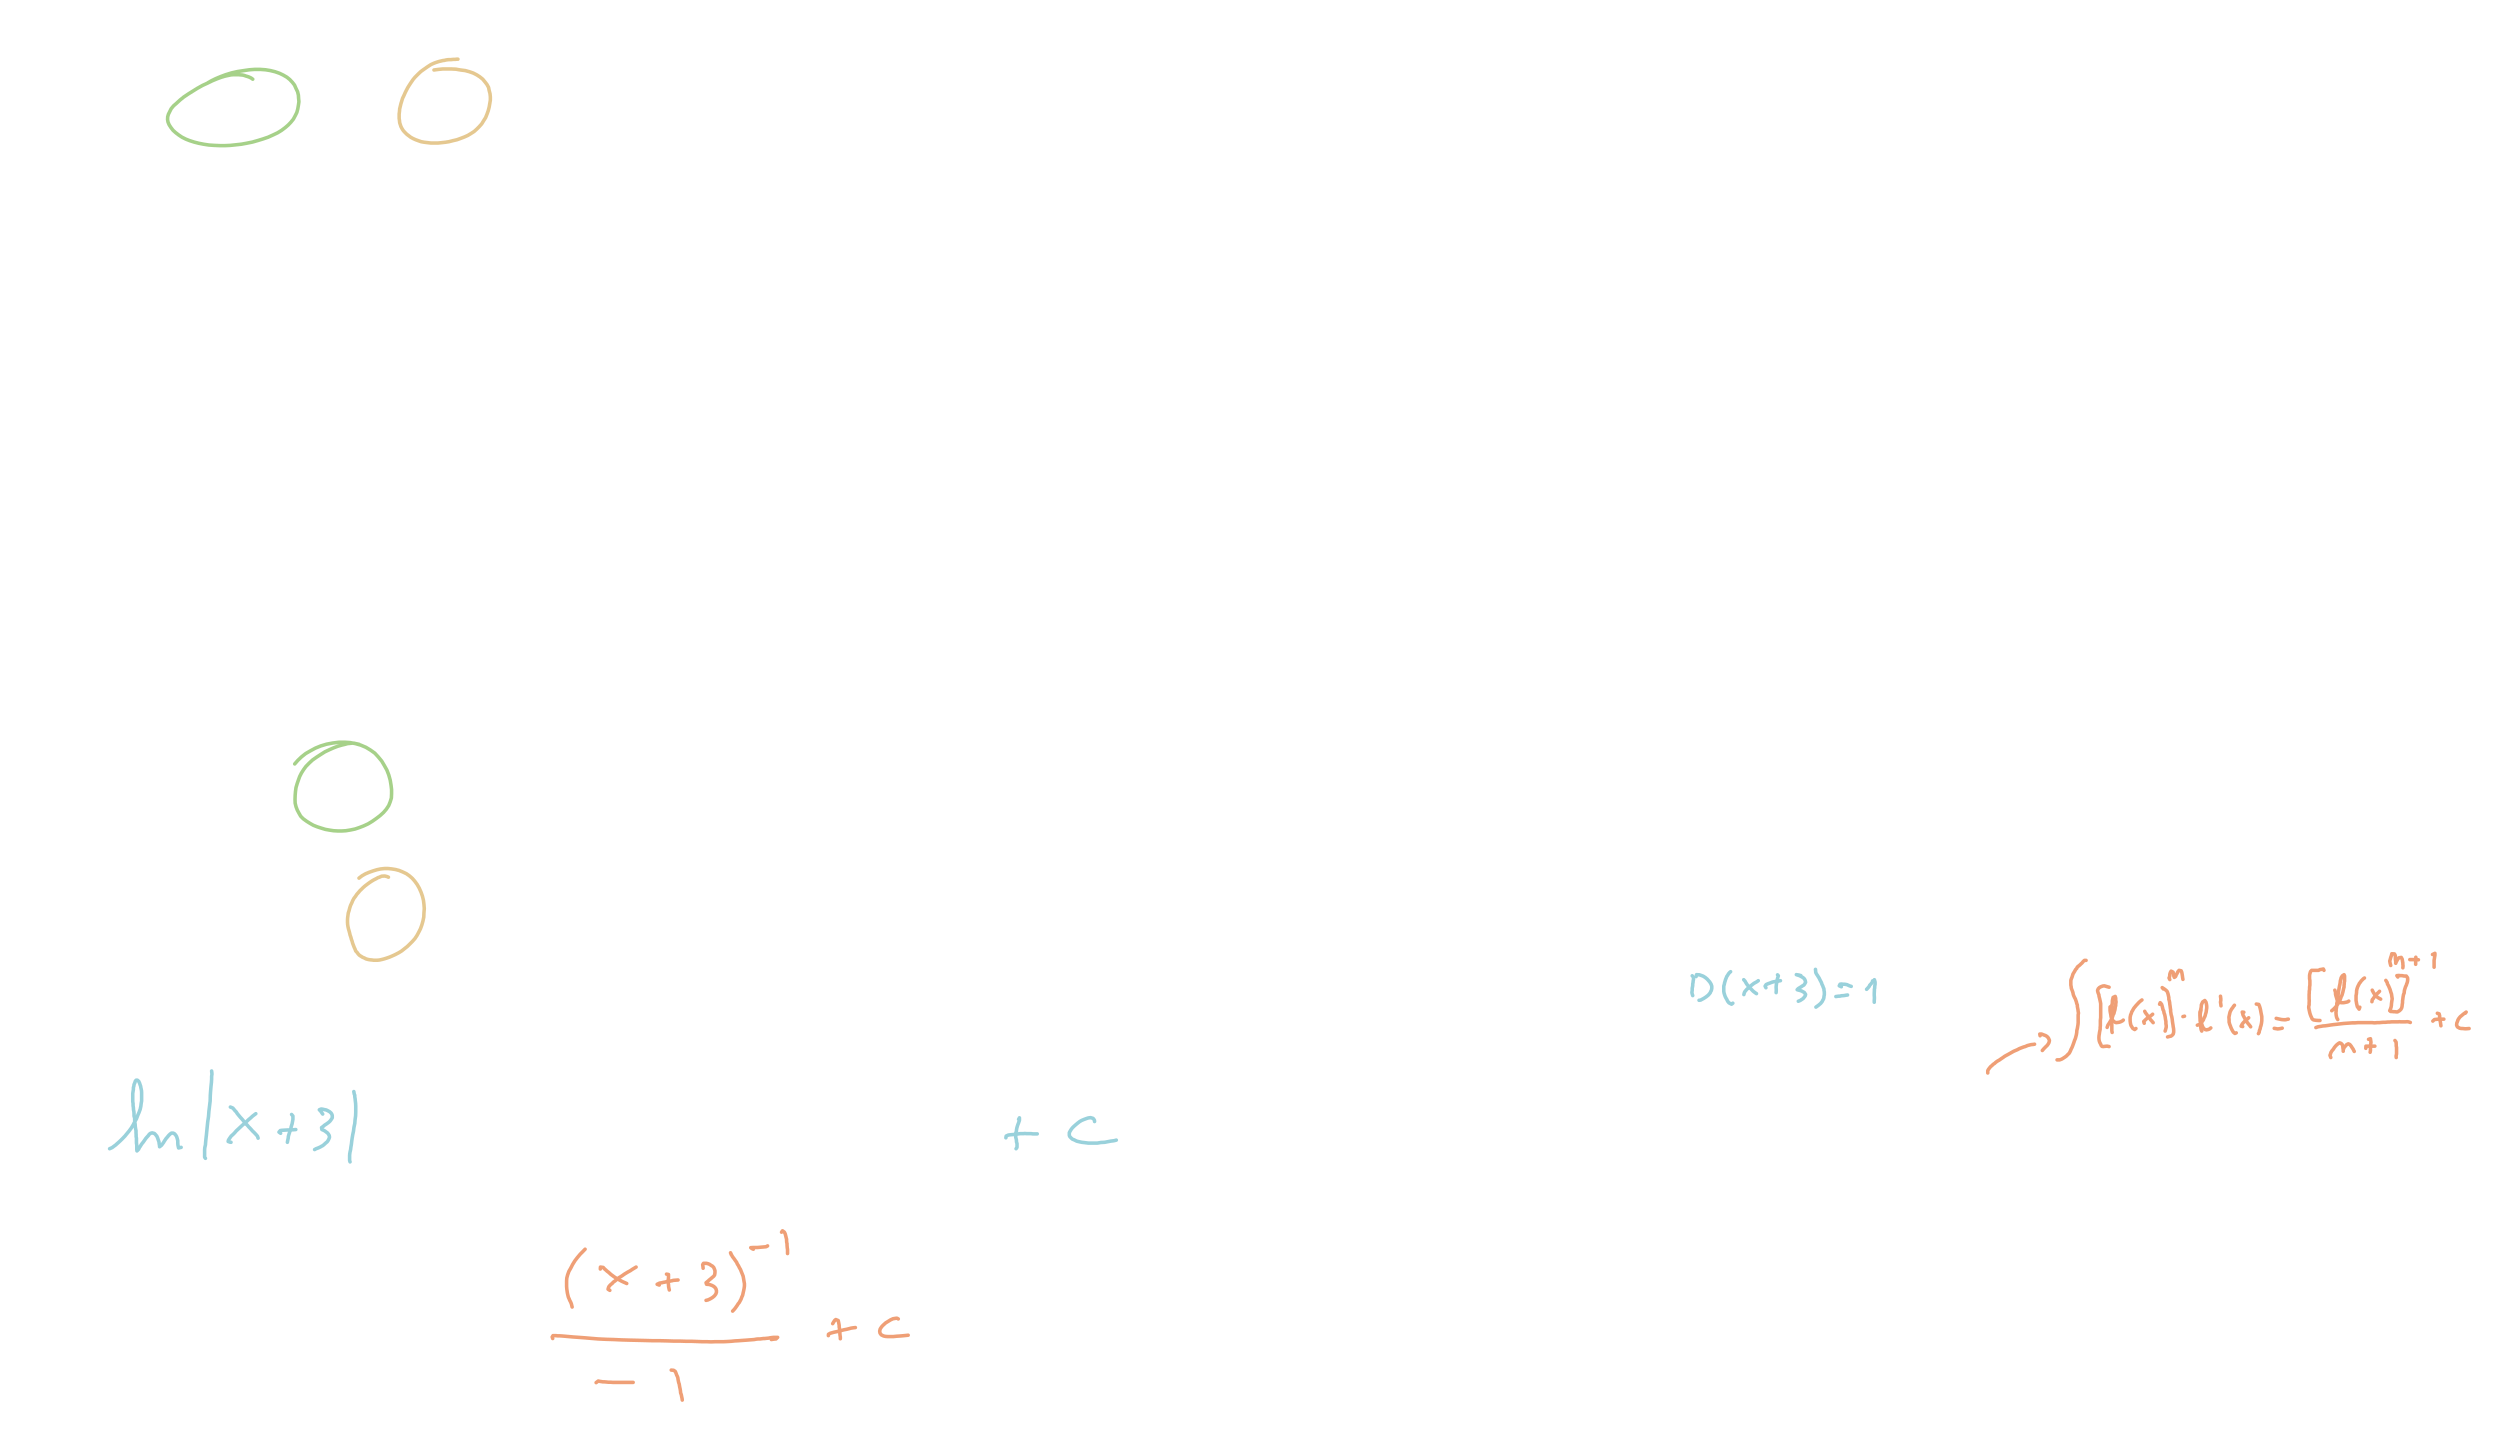 D(x+3)=1
→ ∫[f(x)]ⁿ·f'(x) = [f(x)]ⁿ⁺¹/n+1 + c
ln|x+3| + c
(x+3)⁻¹/-1 + c